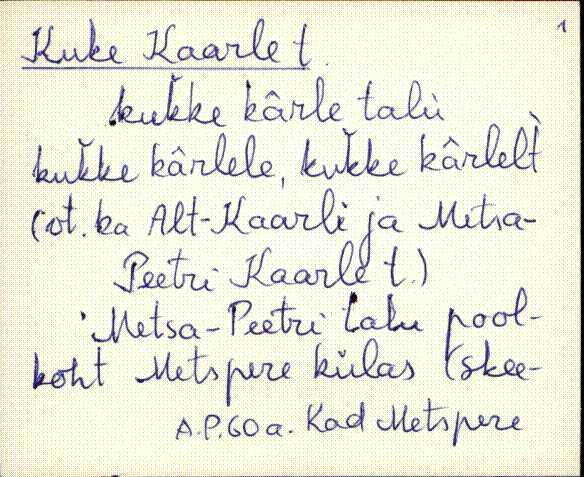 1
Kuke Kaarle t.
kukke kârle talù
kukke kârlele, kukke kârlelt̀
(vt. ka Alt-Kaarli ja Metsa-
Peetri Kaarle t.)
Metsa-Peetri talu pool-
koht Metspere külas (skee-
A.P.60a. Kad Metspere